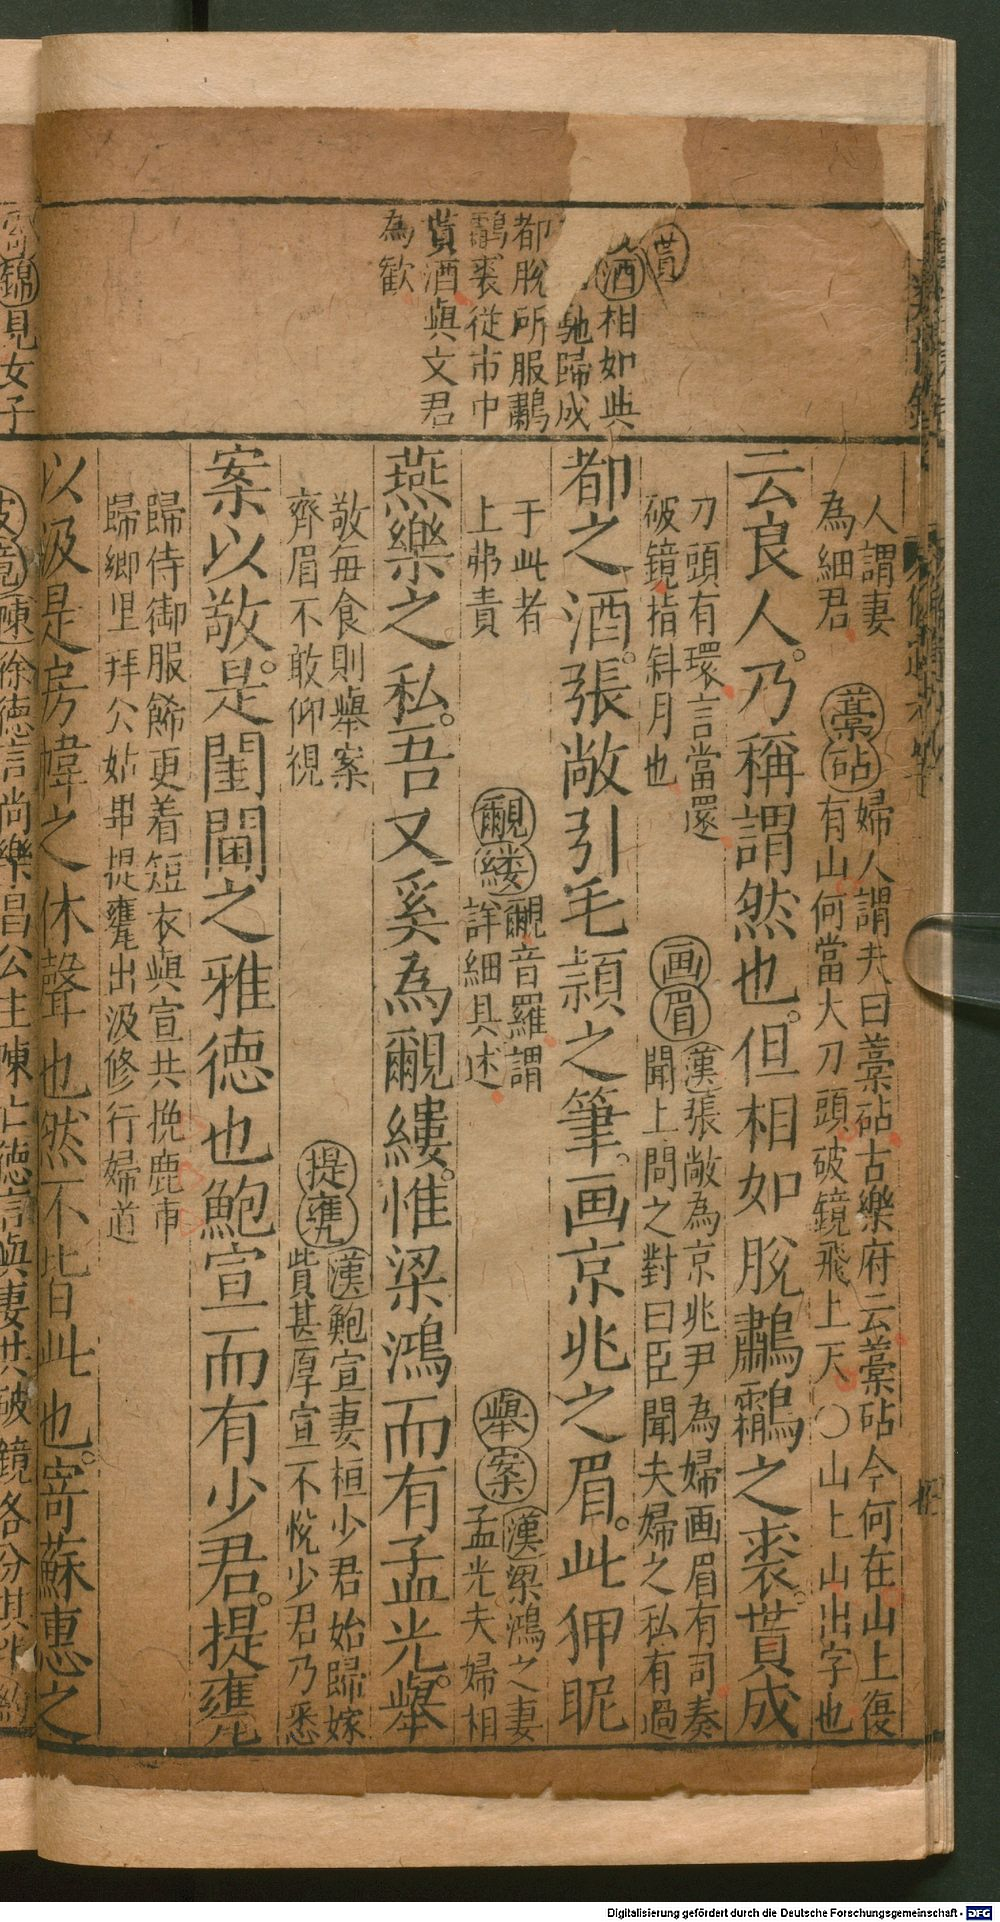 貰
酒相如與
馳歸成
都脫所服鷫
鸘裘從市中
貰酒與文君
為歡
人謂妻
為細君
藁砧
婦人謂夫曰藁砧古樂府云藁砧今何在山上復
有山何當大刀頭破鏡飛上天〇山上山出字也
云良人。乃稱謂然也。但相如脫鷫鸘之裘。貰成
刀頭有環言當還
破鏡指斜月也
画眉
漢張敞為京兆尹為婦画眉有司奏
聞上問之對曰臣聞夫婦之私有過
都之酒。張敞引毛頴之筆。画京兆之眉。此狎昵
于此者
上弗責
覼縷
覼音羅謂
詳細具述
舉案
漢梁鴻之妻
孟光夫婦相
燕樂之私。吾又奚為覼縷。惟梁鴻而有孟光。舉
敬每食則舉案
齊眉不敢仰視
提甕
漢鮑宣妻桓少君始歸嫁
貲甚厚宣不悅少君乃悉
案以敬。是閨閫之雅德也鮑宣而有少君。提甕
歸侍御服飾更着短衣與宣共挽鹿車
歸鄉里拜公姑畢提甕出汲修行婦道
以汲是房幃之休聲也然不皆此也。寄蘇惠之
錦見女子
徐德言尚樂昌公主陳亡德言與妻共破鏡各分其半約
Digitalisierung gefördert durch die Deutsche Forschungsgemeinschaft - DFG